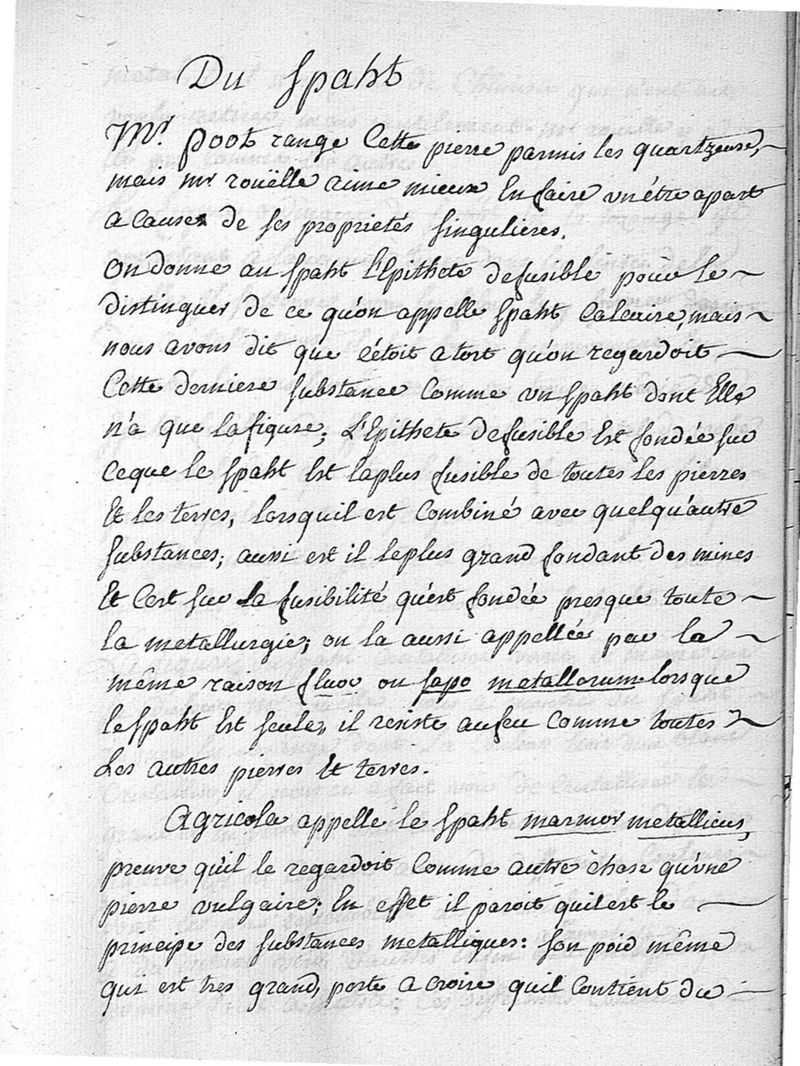 Du Spaht
Mr. poot range Cette pierre parmis les quartzeuse,
mais mr rouëlle aime mieux En faire un être apart
a cause de ses proprietés singulières.
on donne au spaht l'Epithete de fusible pour le
distinguer de ce qu'on appelle spaht Calcaire, mais
nous avons dit que c'étoit a tort qu'on regardoit
Cette derniere substance Comme un spaht dont Elle
n'a que la figure; L'Epithete de fusible Est fondée sur
ceque le spaht Est la plus fusible de toutes les pierres
Et les terres, lorsquil est Combiné avec quelqu'autre
substances; aussi est il le plus grand fondant des mines
Et C'est sur la fusibilité qu'est fondée presque toute
la metallurgie; on la aussi appellée par la
même raison fluor ou sapo metallorum lorsque
le spaht Est seule, il resiste au feu comme toutes
Les autres pierres Et terres.
Agricola appelle le spaht marmor metallicus,
preuve qu'il le regardoit Comme autre chose qu'une
pierre vulgaire; En effet il paroit quil est le
principe des substances metalliques: son poid même
qui est tres grand, porte a croire quil contient du